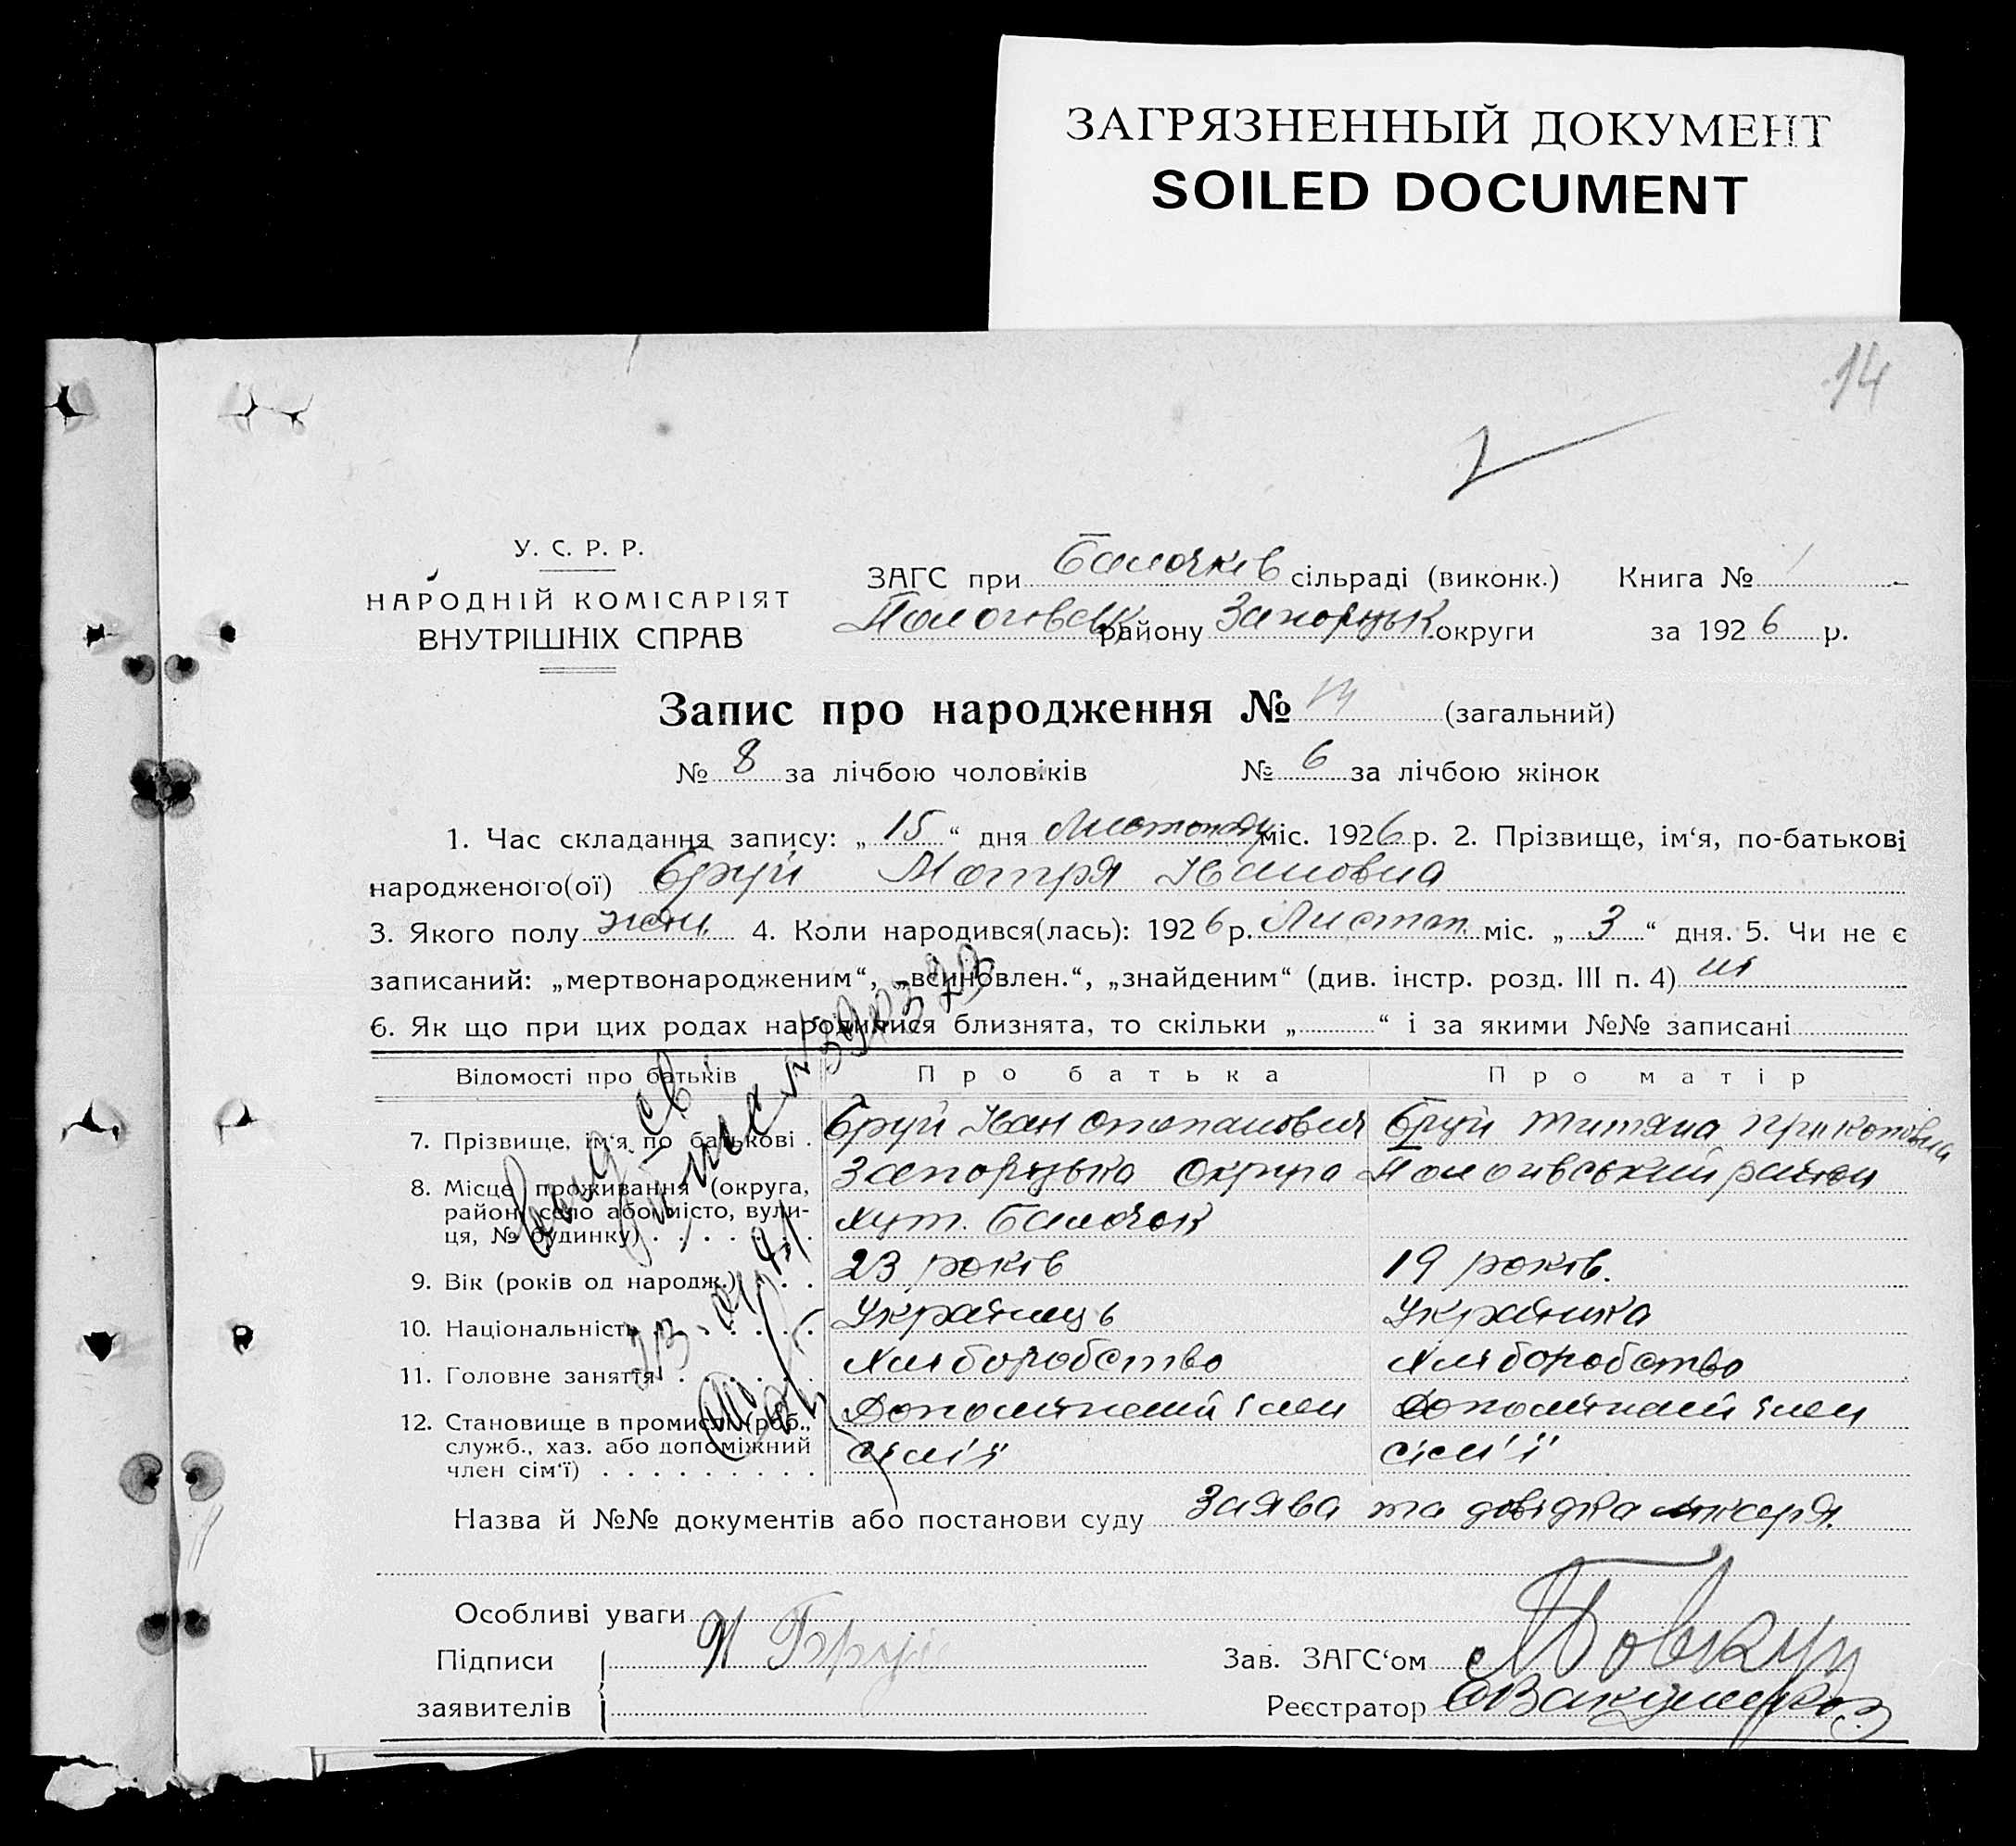 ЗАГРЯЗНЕННЫЙ ДОКУМЕНТ
SOILED DOCUMENT
14
У. С. Р. Р.
НАРОДНІЙ КОМІСАРІЯТ
ВНУТРІШНІХ СПРАВ
ЗАГС при Балочків сільраді (виконк.) Книга № 1
Пологівськ району Запорізьк округи за 1926 р.
Запис про народження № 14 (загальний)
№ 8 за лічбою чоловіків № 6 за лічбою жінок
1. Час складання запису: „15“ дня Листопаду міс. 1926 р. 2. Прізвище, ім‘я, по-батькові
народженого(ої) Бруй Мотря Івановна
3. Якого полу жін. 4. Коли народився(лась): 1926 р. Листоп. міс. „3“ дня. 5. Чи не є
записаний: „мертвонародженим“, „всиновлен.“, „знайденим“ (див. інстр. розд. III п. 4) ні
6. Як що при цих родах народилися близнята, то скільки „ “ і за якими №№ записані
Відомості про батьків Про батька Про матір
7. Прізвище, ім‘я по батькові . Бруй Іван Степанович Бруй Титяна Прокоповна
8. Місце проживання (округа, район, село або місто, вулиця, № будинку) . . . . . . . Запорізька Округа Пологивський район
хут. Балочок
9. Вік (років од народж.) . . . 23 років 19 років.
10. Національність . . . . . . Українець Українка
11. Головне заняття . . . . . . Хліборобство Хліборобство
12. Становище в промислі (роб., служб., хаз. або допоміжний член сім‘ї) . . . . . . . . . Допоміжний член сім'ї Допоміжний член сім'ї
Назва й №№ документів або постанови суду Заява та довідка лікаря.
Особливі уваги
Підписи
заявителів
И Бруй
Зав. ЗАГС‘ом
Реєстратор